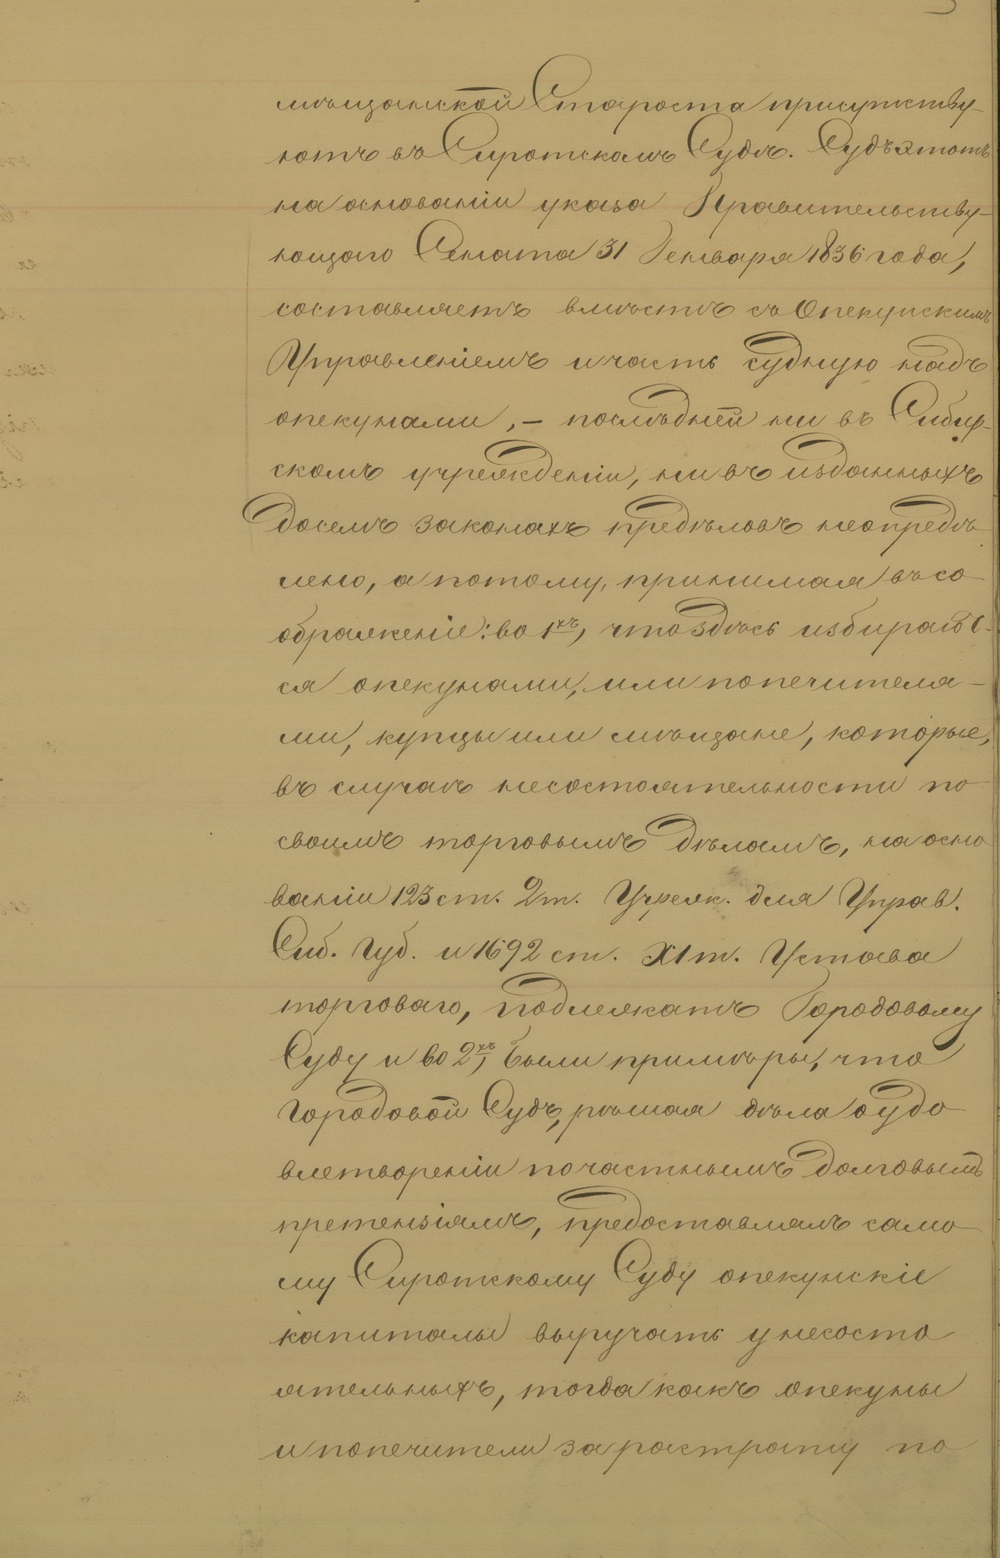 мѣщанской Староста присутству-
ютъ въ Сиротскомъ Судѣ. Судъ этотъ
на основаніи указа Правительству-
ющаго Сената 31 Генваря 1836 года,
составляетъ вмѣстѣ съ Опекунскимъ
Управленіемъ и часть судную надъ
опекунами, – послѣдней ни въ Сибир-
скомъ учрежденіи, ни въ изданныхъ
доселѣ законахъ предѣловъ неопредѣ
лено, а потому, принимая въ со
ображеніе: во 1хъ, что здѣсь избирают-
ся опекунами, или попечителя-
ми, купцы или мѣщане, которые,
въ случаѣ несостоятельности по
своимъ торговымъ дѣламъ, на осно
ваніи 123 ст. 2 т. Учреж. для Управ.
Сиб. Губ. и 1692 ст. XI т. Устава
торговаго, подлежатъ Городовому
Суду и во 2хъ, были примѣры, что
Городовой Судъ, рѣшая дѣла о удо
влетвореніи по частнымъ долговымъ
претензіямъ, предоставлялъ само
му Сиротскому Суду опекунскіе
капиталы выручать у несосто
ятельныхъ, тогда какъ опекуны
и попечители за растрату по